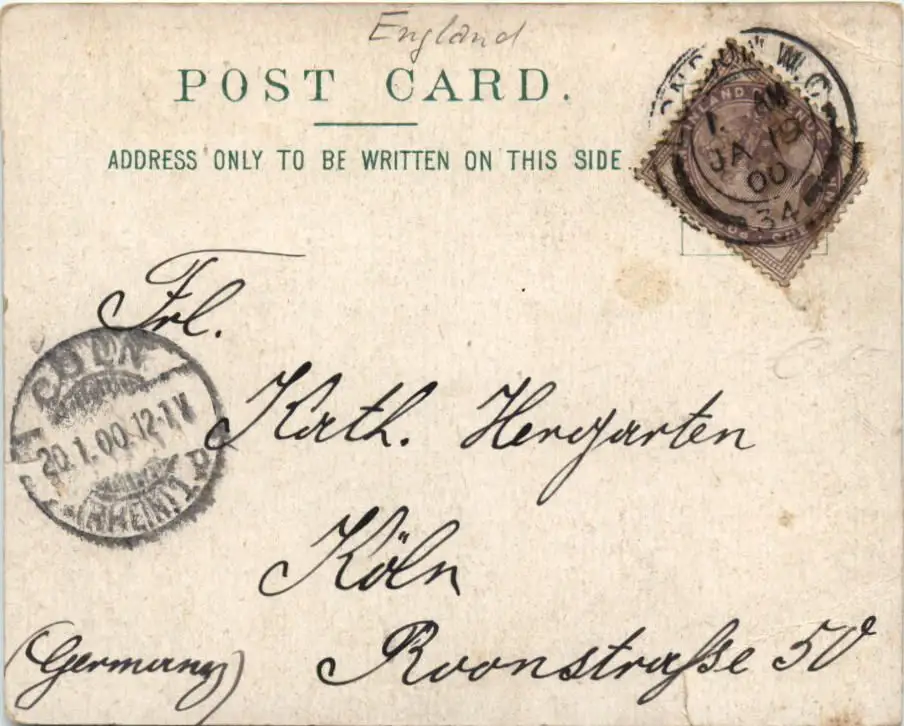 England
POST CARD.
ADDRESS ONLY TO BE WRITTEN ON THIS SIDE.
LONDON W.C.
1. AM
JA 19
00
34
INLAND REVENUE
Frl.
CÖLN
20.1.00.12-1N
(RHEIN) 1
Kath. Hergarten
Köln
(Germany)
Roonstraße 50